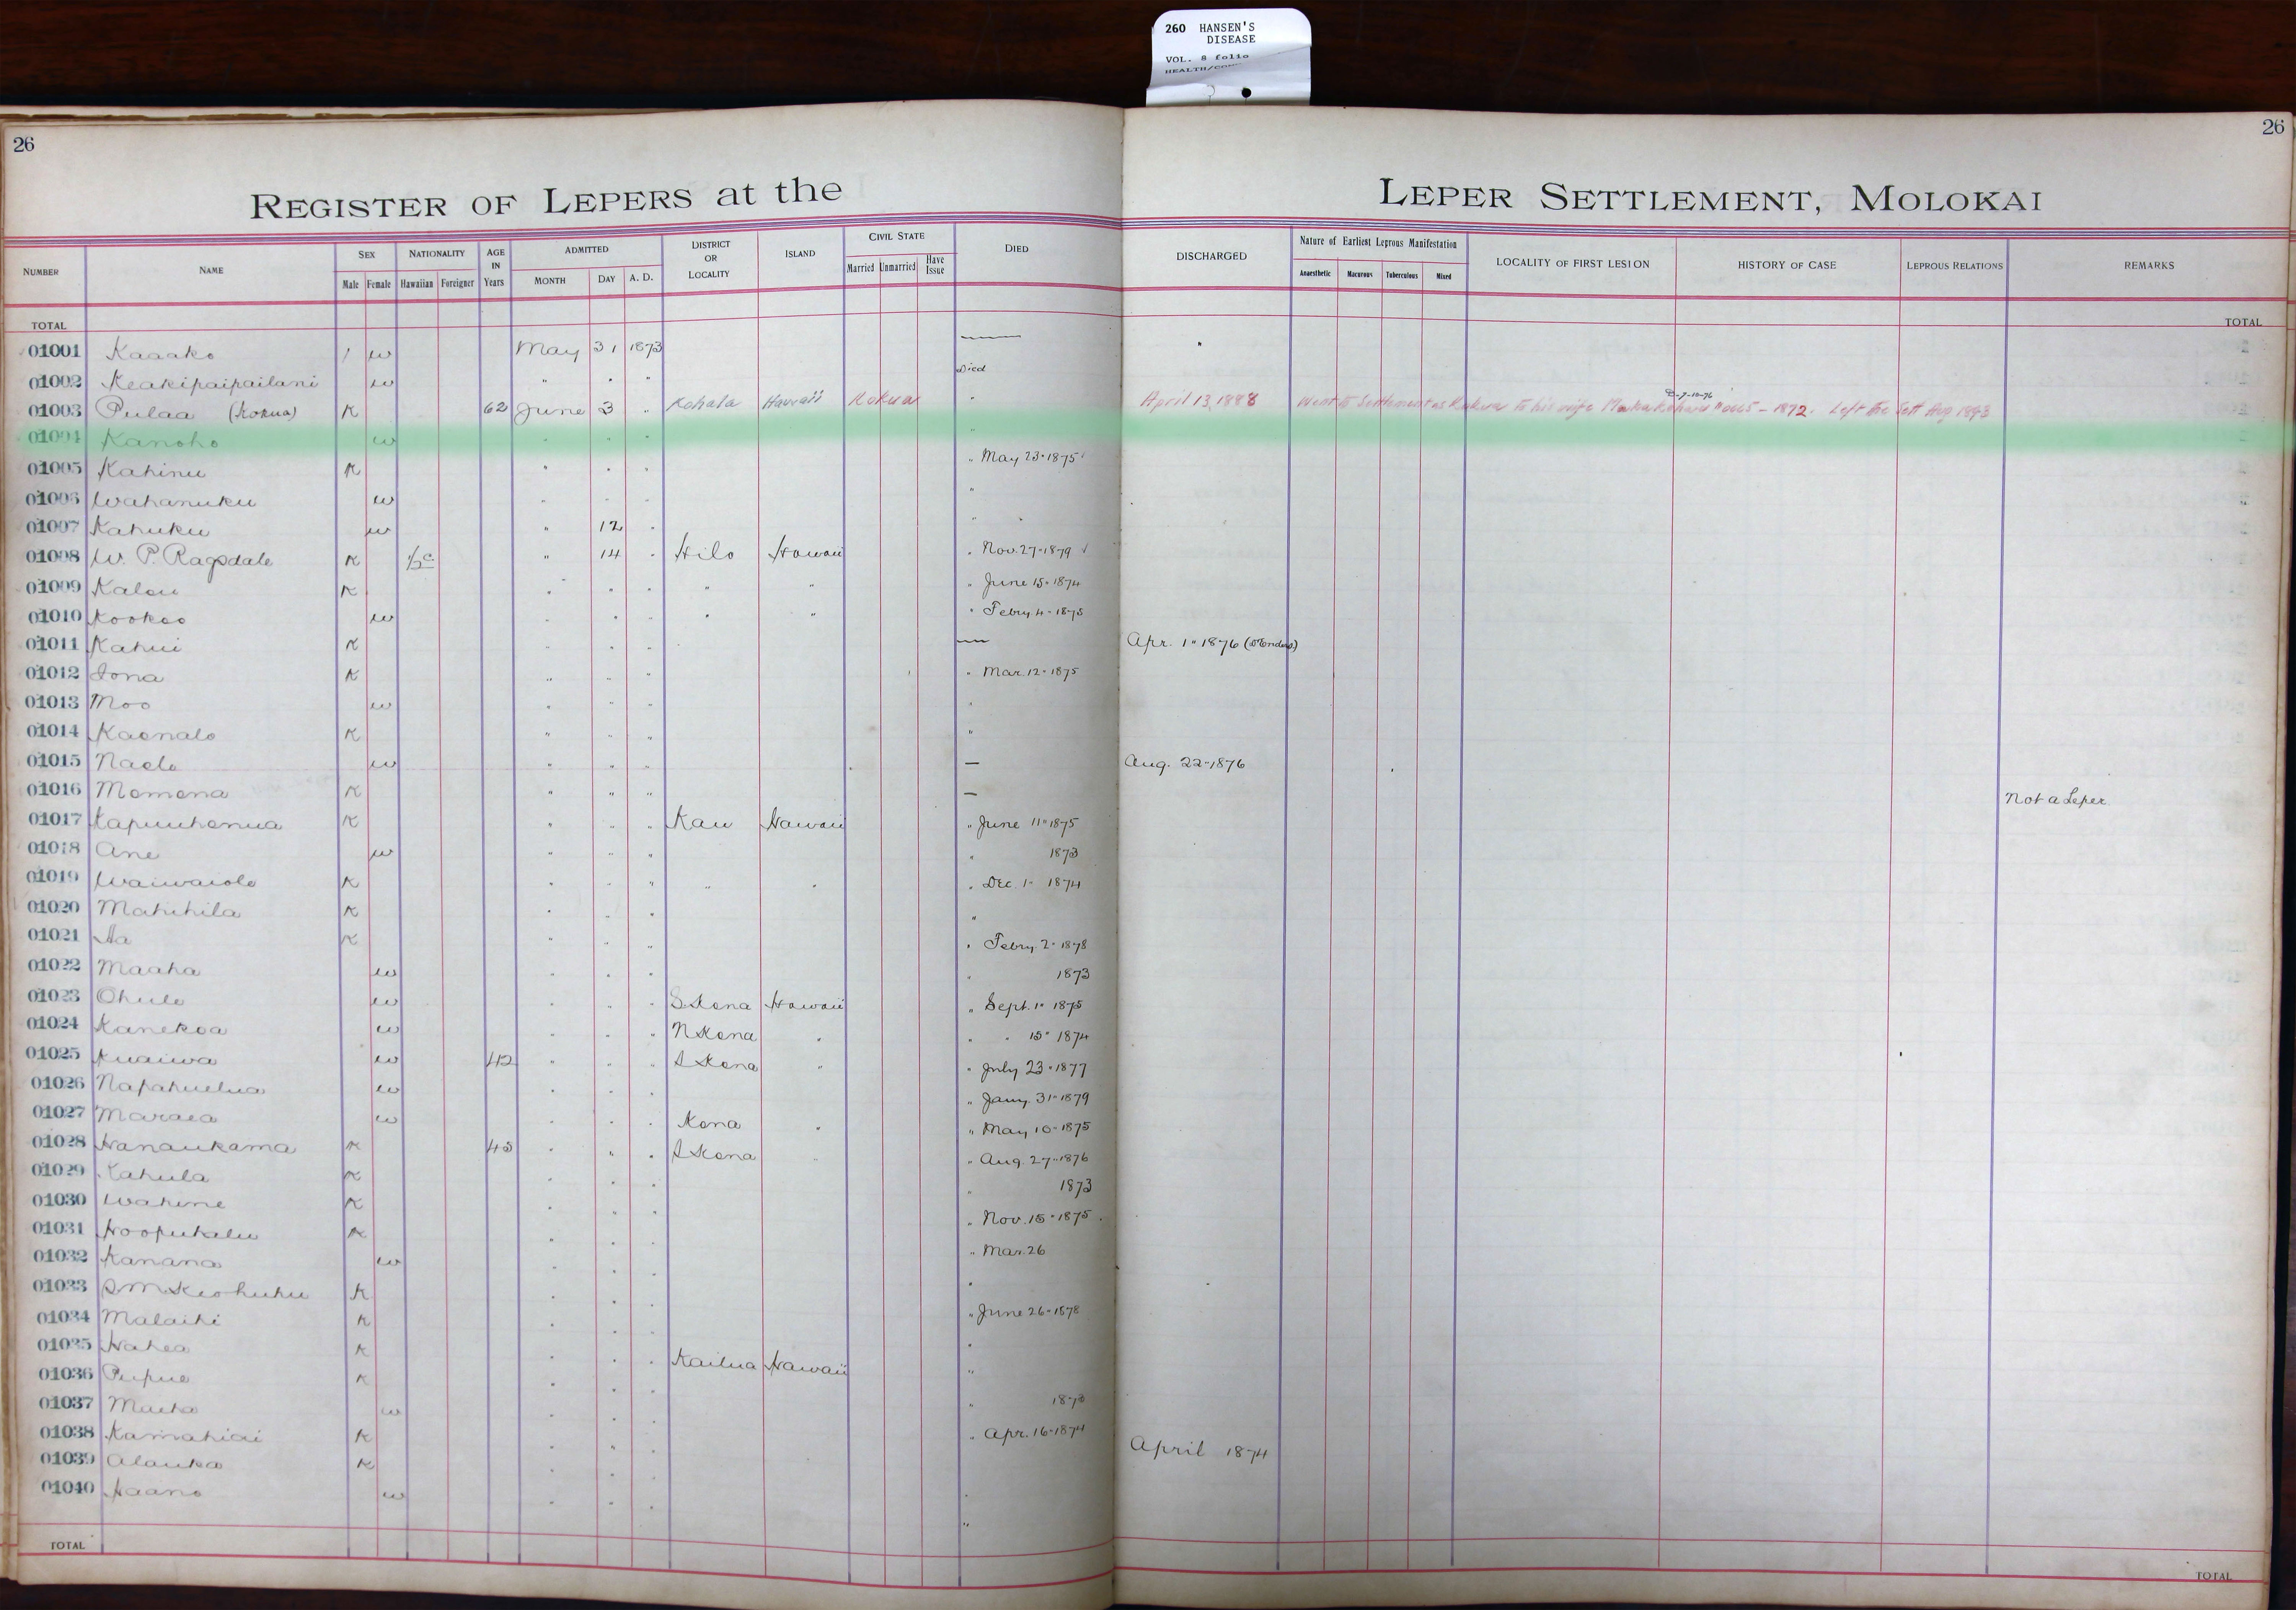 260 HANSEN'S
DISEASE
VOL. 8 folio
HEALTH/COM
26
26
REGISTER OF LEPERS at the LEPER SETTLEMENT, MOLOKAI
NUMBER NAME SEX NATIONALITY AGE IN Years ADMITTED DISTRICT OR LOCALITY ISLAND CIVIL STATE DIED DISCHARGED Nature of Earliest Leprous Manifestation LOCALITY OF FIRST LESION HISTORY OF CASE LEPROUS RELATIONS REMARKS
Male Female Hawaiian Foreigner MONTH DAY A. D. Married Unmarried Have Issue Anaesthetic Macurous Tuberculous Mixed
TOTAL TOTAL
01001 Kaaako 1 w May 31 1873 — "
01002 Keakipaipailani w " " " Died
01003 Pulaa (Kokua) K 62 June 3 " Kohala Hawaii Kokua " April 13, 1888 Went to Settlement as Kokua to his wife - 1872. Left the Sett Aug 1893
D-7-10-76
01004 Kanoho w " " " "
01005 Kahinu K " " " " May 23 · 1875
01006 Wahanuku w " " " "
01007 Kahuku w " 12 " "
01008 W. P. Ragsdale K ½ c " 14 " Hilo Hawaii " Nov. 27 · 1879
01009 Kalou K " " " " " " June 15 · 1874
01010 Kookoo w " " " " " " Febry. 4 - 1875
01011 Kahui K " " " — Apr. 1 " 1876
01012 Iona K " " " " Mar. 12 · 1875
01013 Moo w " " " "
01014 Kaonalo K " " " "
01015 Naele w " " " — Aug. 22 - 1876
01016 Momona K " " " — Not a Leper
01017 Kapuuhonua K " " " Kau Hawaii " June 11 " 1875
01018 Ane w " " " " 1873
01019 Waiwaiole K " " " " " " Dec. 1 - 1874
01020 Mahihila K " " " "
01021 Aa K " " " " Febry. 2 · 1878
01022 Maaha w " " " " 1873
01023 Ohule w " " " S. Kona Hawaii " Sept. 1 " 1875
01024 Kanekoa w " " " N Kona " " " 15 " 1874
01025 Kuaiwa w 42 " " " S Kona " " July 23 · 1877
01026 Napahuelua w " " " " Jany. 31 · 1879
01027 Maraea w " " " Kona " " May 10 - 1875
01028 Hanaukama K 45 " " " S Kona " " Aug. 27 · 1876
01029 Kahula K " " " " 1873
01030 Wahine K " " " " Nov. 15 · 1875
01031 Hoopukalu K " " " " Mar. 26
01032 Kanana w " " " "
01033 S M Keohuhu K " " " " June 26 - 1878
01034 Malaihi K " " " "
01035 Hahea K " " " Kailua Hawaii "
01036 Pupue K " " " " 1873
01037 w " " " " Apr. 16 - 1874
01038 Kamahiai K " " " April 1874
01039 Alauka K " " " "
01040 Haano w " " " "
TOTAL TOTAL